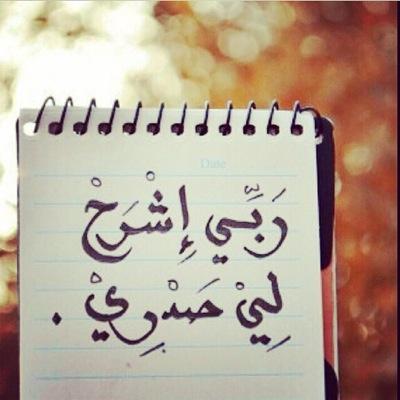 Date
رَبِّي إِشْرَحْ
لِيْ صَدْرِيْ .